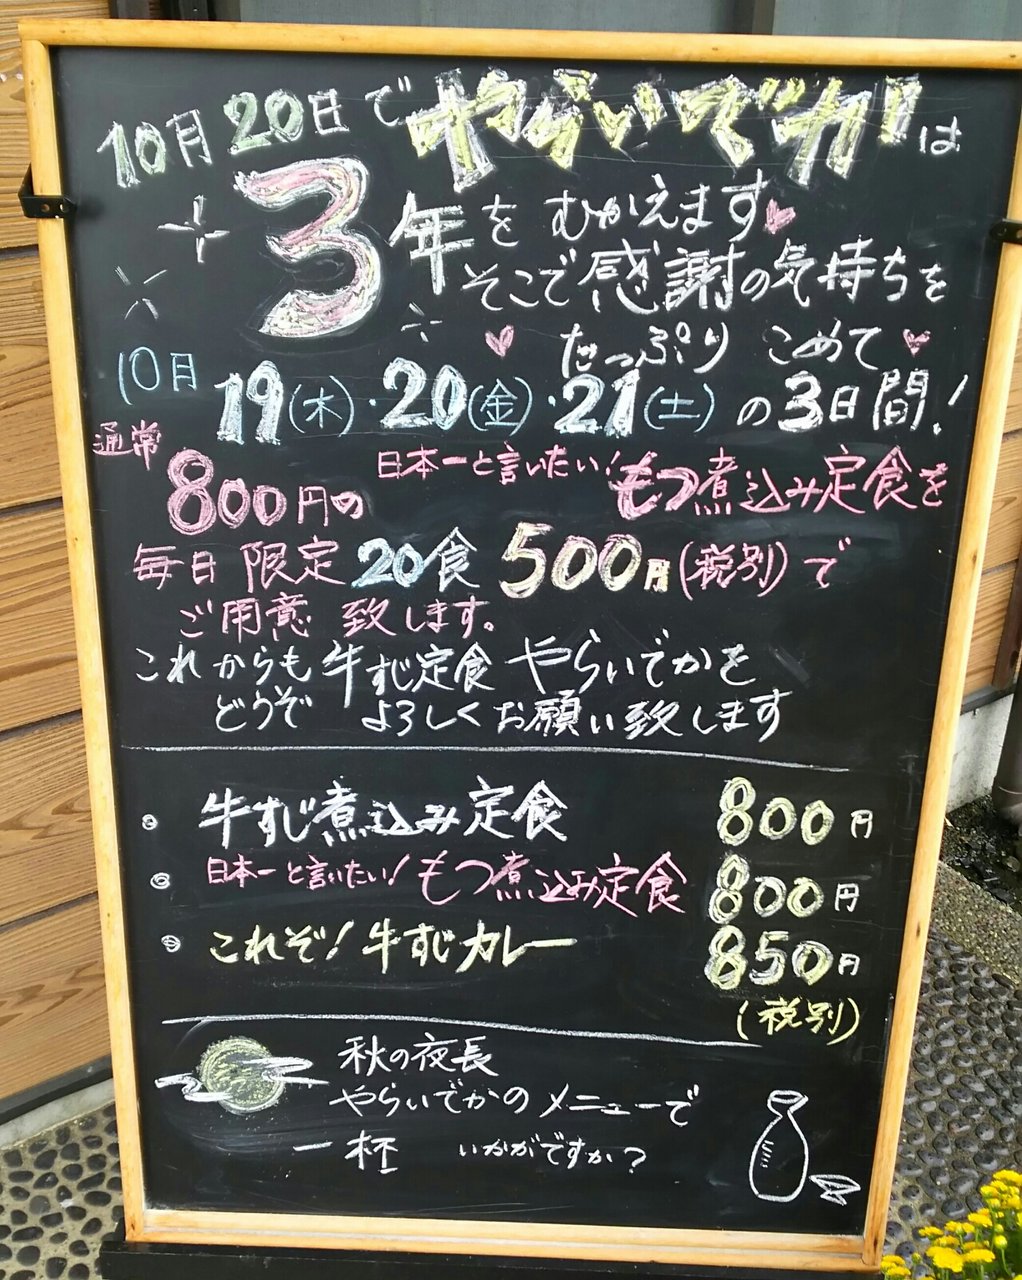 10月20日でやらいでかは
3年をむかえます
そこで感謝の気持ちを
たっぷりこめて
10月19(木)・20(金)・21(土)の3日間!
通常800円の日本一と言いたい!もつ煮込み定食を
毎日限定20食500円(税別)で
ご用意致します。
これからも牛すじ定食やらいでかを
どうぞよろしくお願い致します
牛すじ煮込み定食 800円
日本一と言いたい!もつ煮込み定食 800円
これぞ!牛すじカレー 850円
(税別)
秋の夜長
やらいでかのメニューで
一杯 いかがですか?